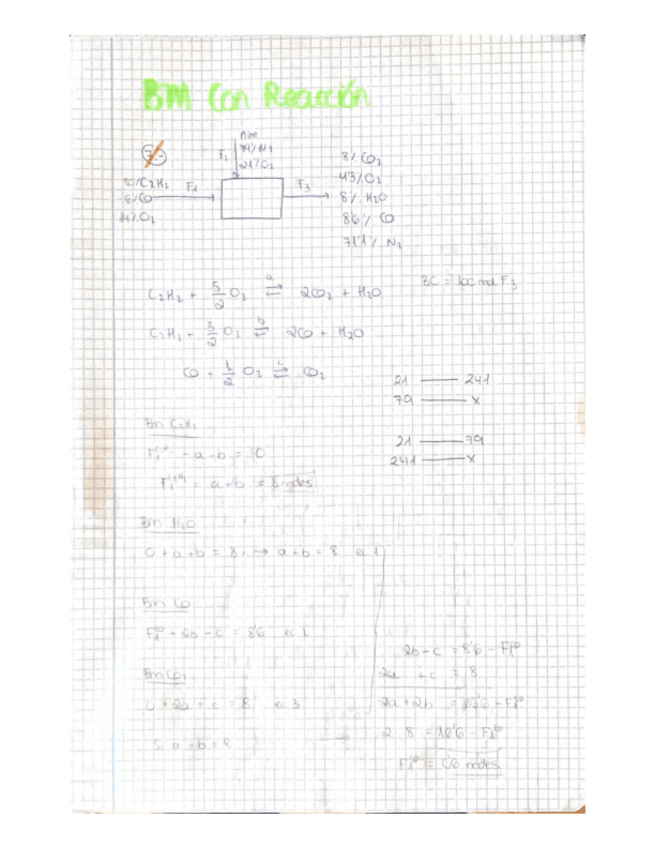 BM Con Reacción
7.-
Aire
79% N2
21% O2
F2
80% C2H2
6% CO
14% O2
F1
F3
8% CO2
4'3% O2
8% H2O
8'6% CO
71'1% N2
BC = 100 mol F3
C2H2 + 5/2 O2 ⇌ a 2CO2 + H2O
C2H2 + 3/2 O2 ⇌ b 2CO + H2O
CO + 1/2 O2 ⇌ c CO2
21 —— 241
79 —— x
21 —— 79
241 —— x
Bm C2H2
- a - b = 0
= a + b = 8 moles
Bm H2O
0 + a + b = 8 → a + b = 8 ec 1
Bm CO
F1^CO + 2b - c = 8'6 ec 2
Bm CO2
0 + 2a + c = 8 ec 3
Si a + b = 8
2b - c = 8'6 - F1^CO
2a + c = 8
2a + 2b = 16'6 - F1^CO
2 · 8 = 16'6 - F1^CO
F1^CO = 0'6 moles